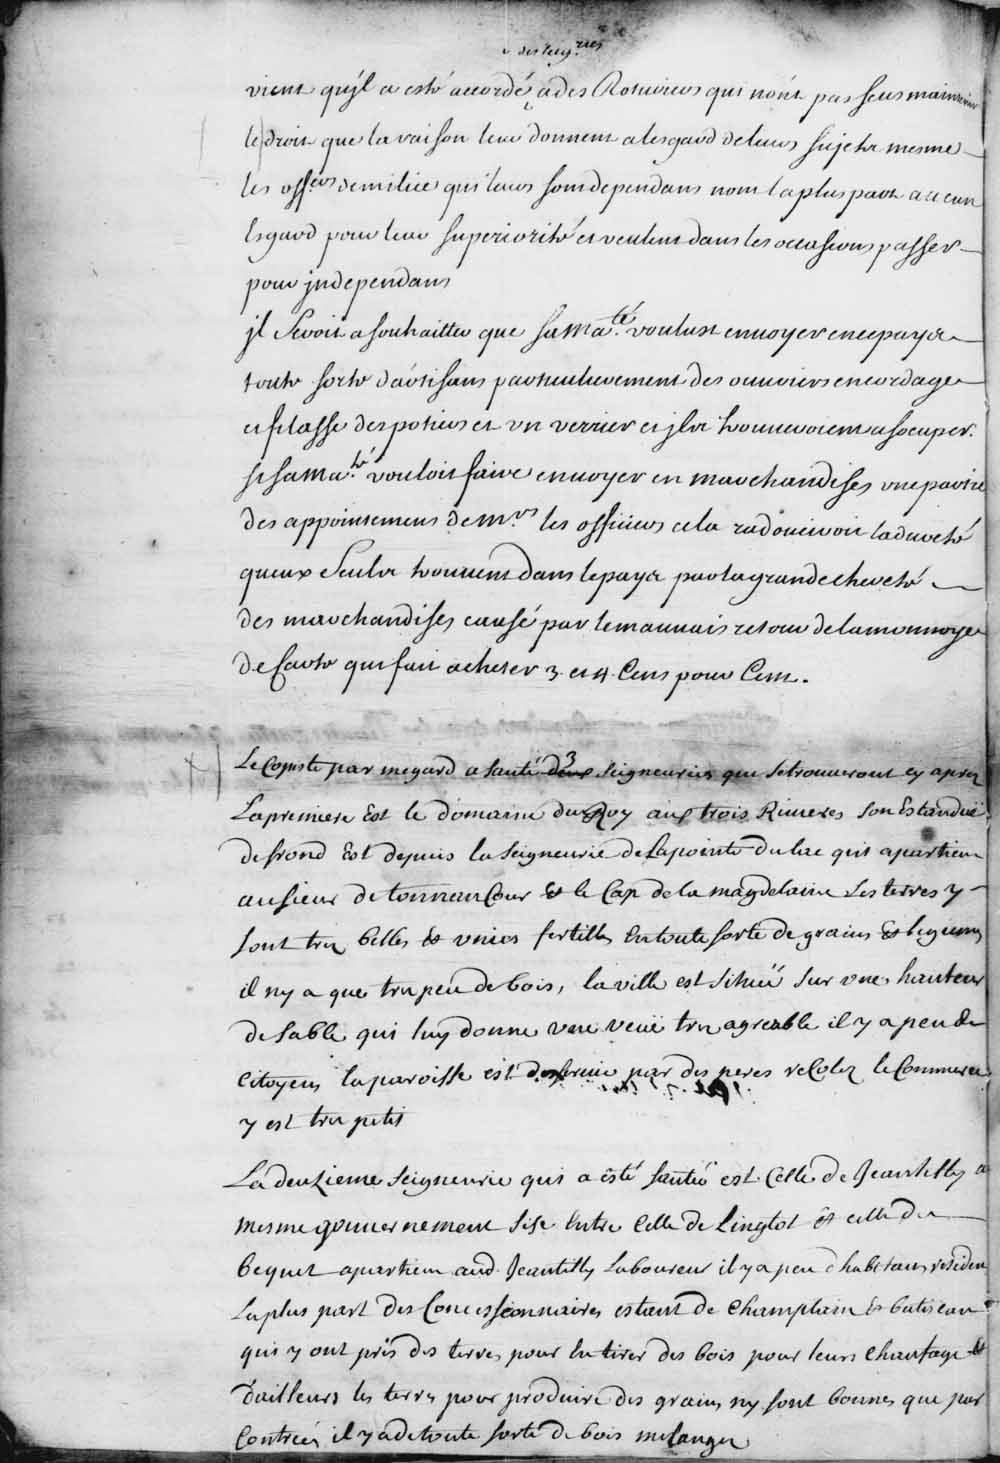 des seig.ries
vient qu'jl a esté accordé a des Roturiers qui n'ont pas sceus maintenir
le droit que la raison leur donnent a l'esgard de leurs sujets mesme
les off.ers de milice qui leurs sont dependans n'ont la plus part aucun
Esgard pour leur superiorité et veulent dans les occasions passer
pour jndependans
jl seroit a souhaitter que sa Ma.té voulust envoyer en ce pays
toute sorte d'artisans particulierement des ouvriers en cordage
et filasse des potiers et un verrier et jls trouveroient a s'ocuper.
si sa Ma.té vouloit faire envoyer en marchandises une partie
des appointemens de M.rs les officiers cela radouciroit la dureté
qu'eux seuls trouvent dans le pays par la grande cherté
des marchandises causé par le mauvais retour de la monnoye
de Carte qui fait acheter 3. et 4. Cens pour Cent.
Le Copiste par megard a santé 3 seigneuries qui se trouveront cy apres
La premiere Est le domaine du Roy aux trois Rivieres son Estandüe
de frond Est depuis la seigneurie de Lapointe du lac qui apartient
au sieur de tonnancour & le Cap de la magdelaine Les terres y
sont tres belles & unies fertilles En toute sorte de grains & legumes
il n'y a que tres peu de bois, la ville est situëe sur une hauteur
de sable qui luy donne une veuë tres agreable il y a peu de
Citoyens la paroisse est desservie par des peres reColez le Commerce
y est tres petit
La deuzieme seigneurie qui a esté santée est Celle de Jeantilly a
mesme gouvernement sise Entre Celle de Linctot & celle de
bequet apartient aud. Jeantilly Laboureur il y a peu d'habitans residens
La plus part des Concessionnaires estant de Champlain & batiscan
qui y ont pris des terres pour En tirer des bois pour leurs chaufage &
d'ailleurs les terres pour produire des grains n'y sont bonnes que par
Contrées il y a de toute sorte de bois melangez